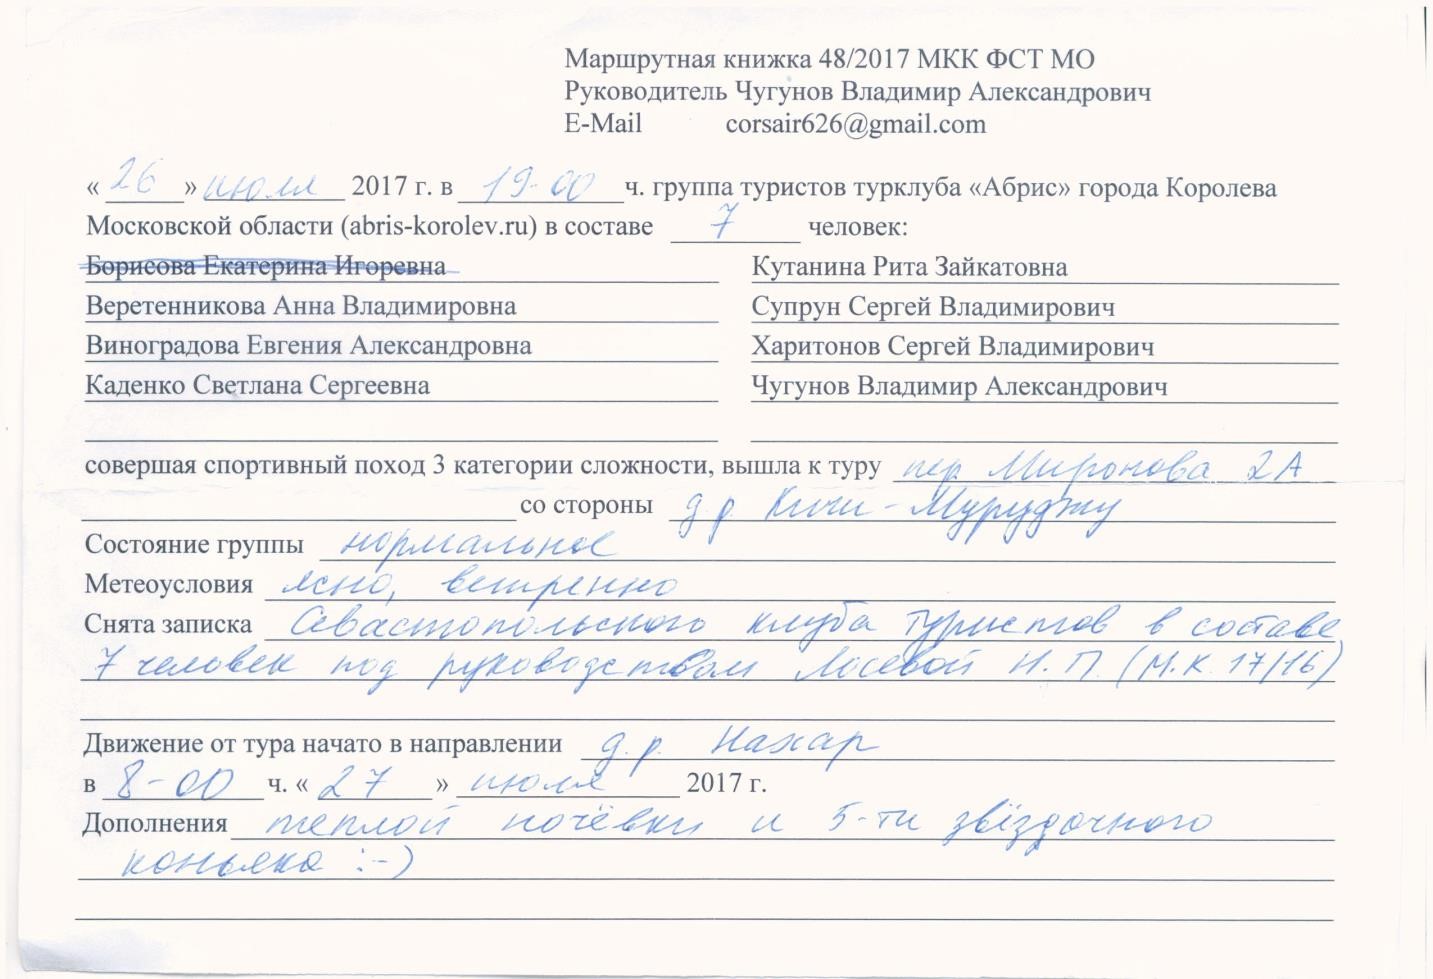 Маршрутная книжка 48/2017 МКК ФСТ МО
Руководитель Чугунов Владимир Александрович
E-Mail corsair626@gmail.com
« 26 » июля 2017 г. в 19-00 ч. группа туристов турклуба «Абрис» города Королева
Московской области (abris-korolev.ru) в составе 7 человек:
Борисова Екатерина Игоревна Кутанина Рита Зайкатовна
Веретенникова Анна Владимировна Супрун Сергей Владимирович
Виноградова Евгения Александровна Харитонов Сергей Владимирович
Каденко Светлана Сергеевна Чугунов Владимир Александрович
совершая спортивный поход 3 категории сложности, вышла к туру пер. Миронова 2А
со стороны д.р. Кичи-Муруджу
Состояние группы нормальное
Метеоусловия ясно, ветренно
Снята записка Севастопольского клуба туристов в составе
7 человек под руководством Лосевой Н.П. (М.К. 17/16)
Движение от тура начато в направлении д.р. Нахар
в 8-00 ч. « 27 » июля 2017 г.
Дополнения теплой ночёвки и 5-ти звёздочного
коньяка :-)